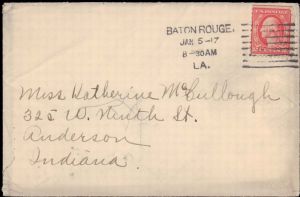 BATON ROUGE,
JAN 5-17
8-30AM
LA.
Miss Katherine McCullough
325 W. Ninth St.
Anderson
Indiana.